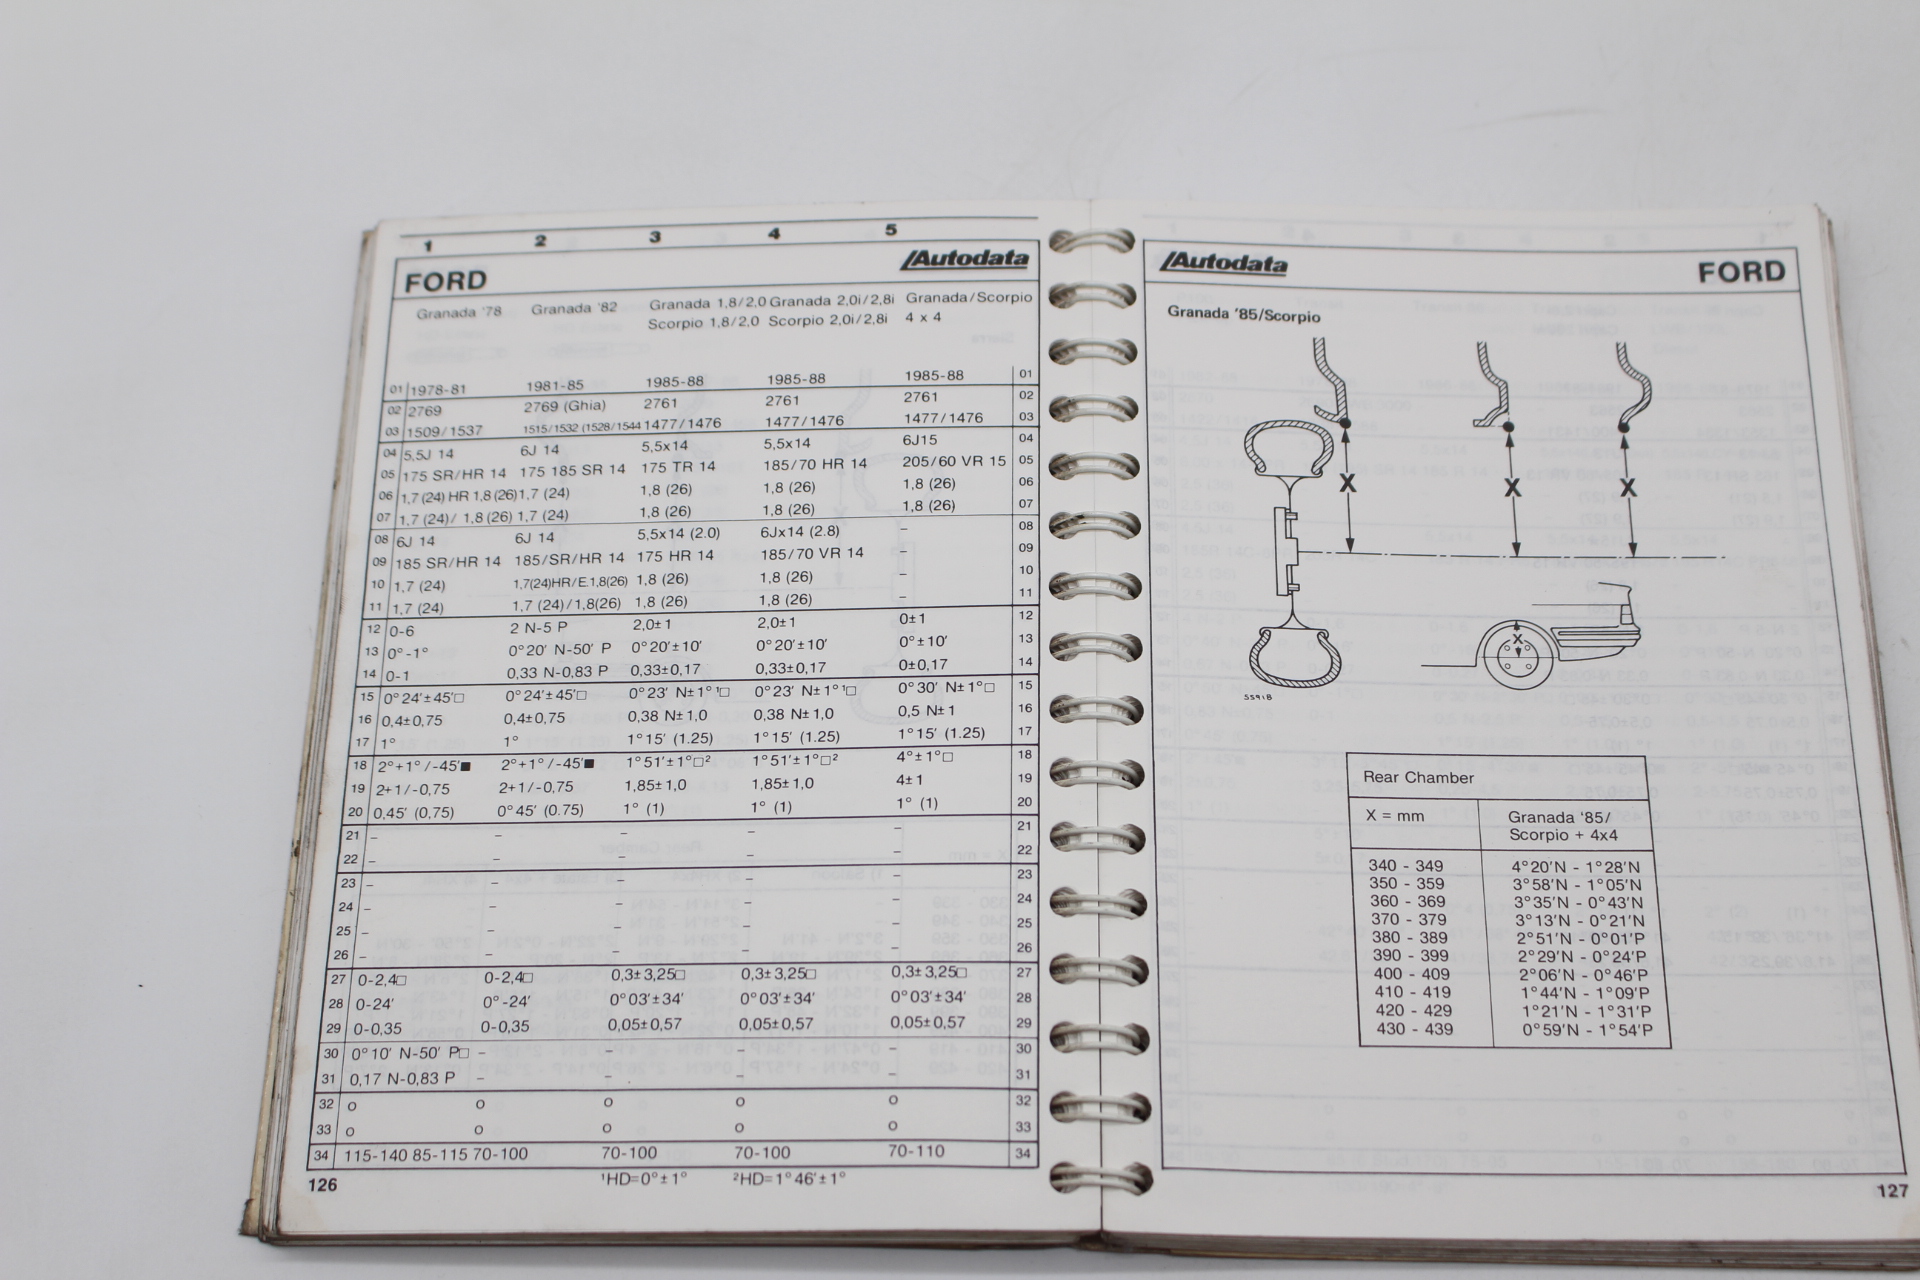 1 2 3 4 5
FORD Autodata
Granada '78 Granada '82 Granada 1,8/2,0 Granada 2,0i/2,8i Granada/Scorpio
Scorpio 1,8/2,0 Scorpio 2,0i/2,8i 4 x 4
01 1978-81 1981-85 1985-88 1985-88 1985-88 01
02 2769 2769 (Ghia) 2761 2761 2761 02
03 1509/1537 1515/1532 (1528/1544 1477/1476 1477/1476 1477/1476 03
04 5,5J 14 6J 14 5,5x14 5,5x14 6J15 04
05 175 SR/HR 14 175 185 SR 14 175 TR 14 185/70 HR 14 205/60 VR 15 05
06 1,7 (24) HR 1,8 (26) 1,7 (24) 1,8 (26) 1,8 (26) 1,8 (26) 06
07 1,7 (24)/ 1,8 (26) 1,7 (24) 1,8 (26) 1,8 (26) 1,8 (26) 07
08 6J 14 6J 14 5,5x14 (2.0) 6Jx14 (2.8) – 08
09 185 SR/HR 14 185/SR/HR 14 175 HR 14 185/70 VR 14 – 09
10 1,7 (24) 1,7(24)HR/E 1,8(26) 1,8 (26) 1,8 (26) – 10
11 1,7 (24) 1,7 (24)/1,8(26) 1,8 (26) 1,8 (26) – 11
12 0-6 2 N-5 P 2,0±1 2,0±1 0±1 12
13 0°-1° 0°20' N-50' P 0°20'±10' 0°20'±10' 0°±10' 13
14 0-1 0,33 N-0,83 P 0,33±0,17 0,33±0,17 0±0,17 14
15 0°24'±45'□ 0°24'±45'□ 0°23' N±1°¹□ 0°23' N±1°¹□ 0°30' N±1°□ 15
16 0,4±0,75 0,4±0,75 0,38 N±1,0 0,38 N±1,0 0,5 N±1 16
17 1° 1° 1°15' (1.25) 1°15' (1.25) 1°15' (1.25) 17
18 2°+1°/-45'■ 2°+1°/-45'■ 1°51'±1°□² 1°51'±1°□² 4°±1°□ 18
19 2+1/-0,75 2+1/-0,75 1,85±1,0 1,85±1,0 4±1 19
20 0,45' (0,75) 0°45' (0.75) 1° (1) 1° (1) 1° (1) 20
21 – – – – – 21
22 – – – – – 22
23 – – – – – 23
24 – – – – – 24
25 – – – – – 25
26 – – – – – 26
27 0-2,4□ 0-2,4□ 0,3±3,25□ 0,3±3,25□ 0,3±3,25□ 27
28 0-24' 0°-24' 0°03'±34' 0°03'±34' 0°03'±34' 28
29 0-0,35 0-0,35 0,05±0,57 0,05±0,57 0,05±0,57 29
30 0°10' N-50' P□ – – – – 30
31 0,17 N-0,83 P – – – – 31
32 o o o o o 32
33 o o o o o 33
34 115-140 85-115 70-100 70-100 70-100 70-110 34
¹HD=0°±1° ²HD=1°46'±1°
126
Autodata FORD
Granada '85/Scorpio
X X X
X
S5918
Rear Chamber
X = mm Granada '85/
Scorpio + 4x4
340 - 349 4°20'N - 1°28'N
350 - 359 3°58'N - 1°05'N
360 - 369 3°35'N - 0°43'N
370 - 379 3°13'N - 0°21'N
380 - 389 2°51'N - 0°01'P
390 - 399 2°29'N - 0°24'P
400 - 409 2°06'N - 0°46'P
410 - 419 1°44'N - 1°09'P
420 - 429 1°21'N - 1°31'P
430 - 439 0°59'N - 1°54'P
127